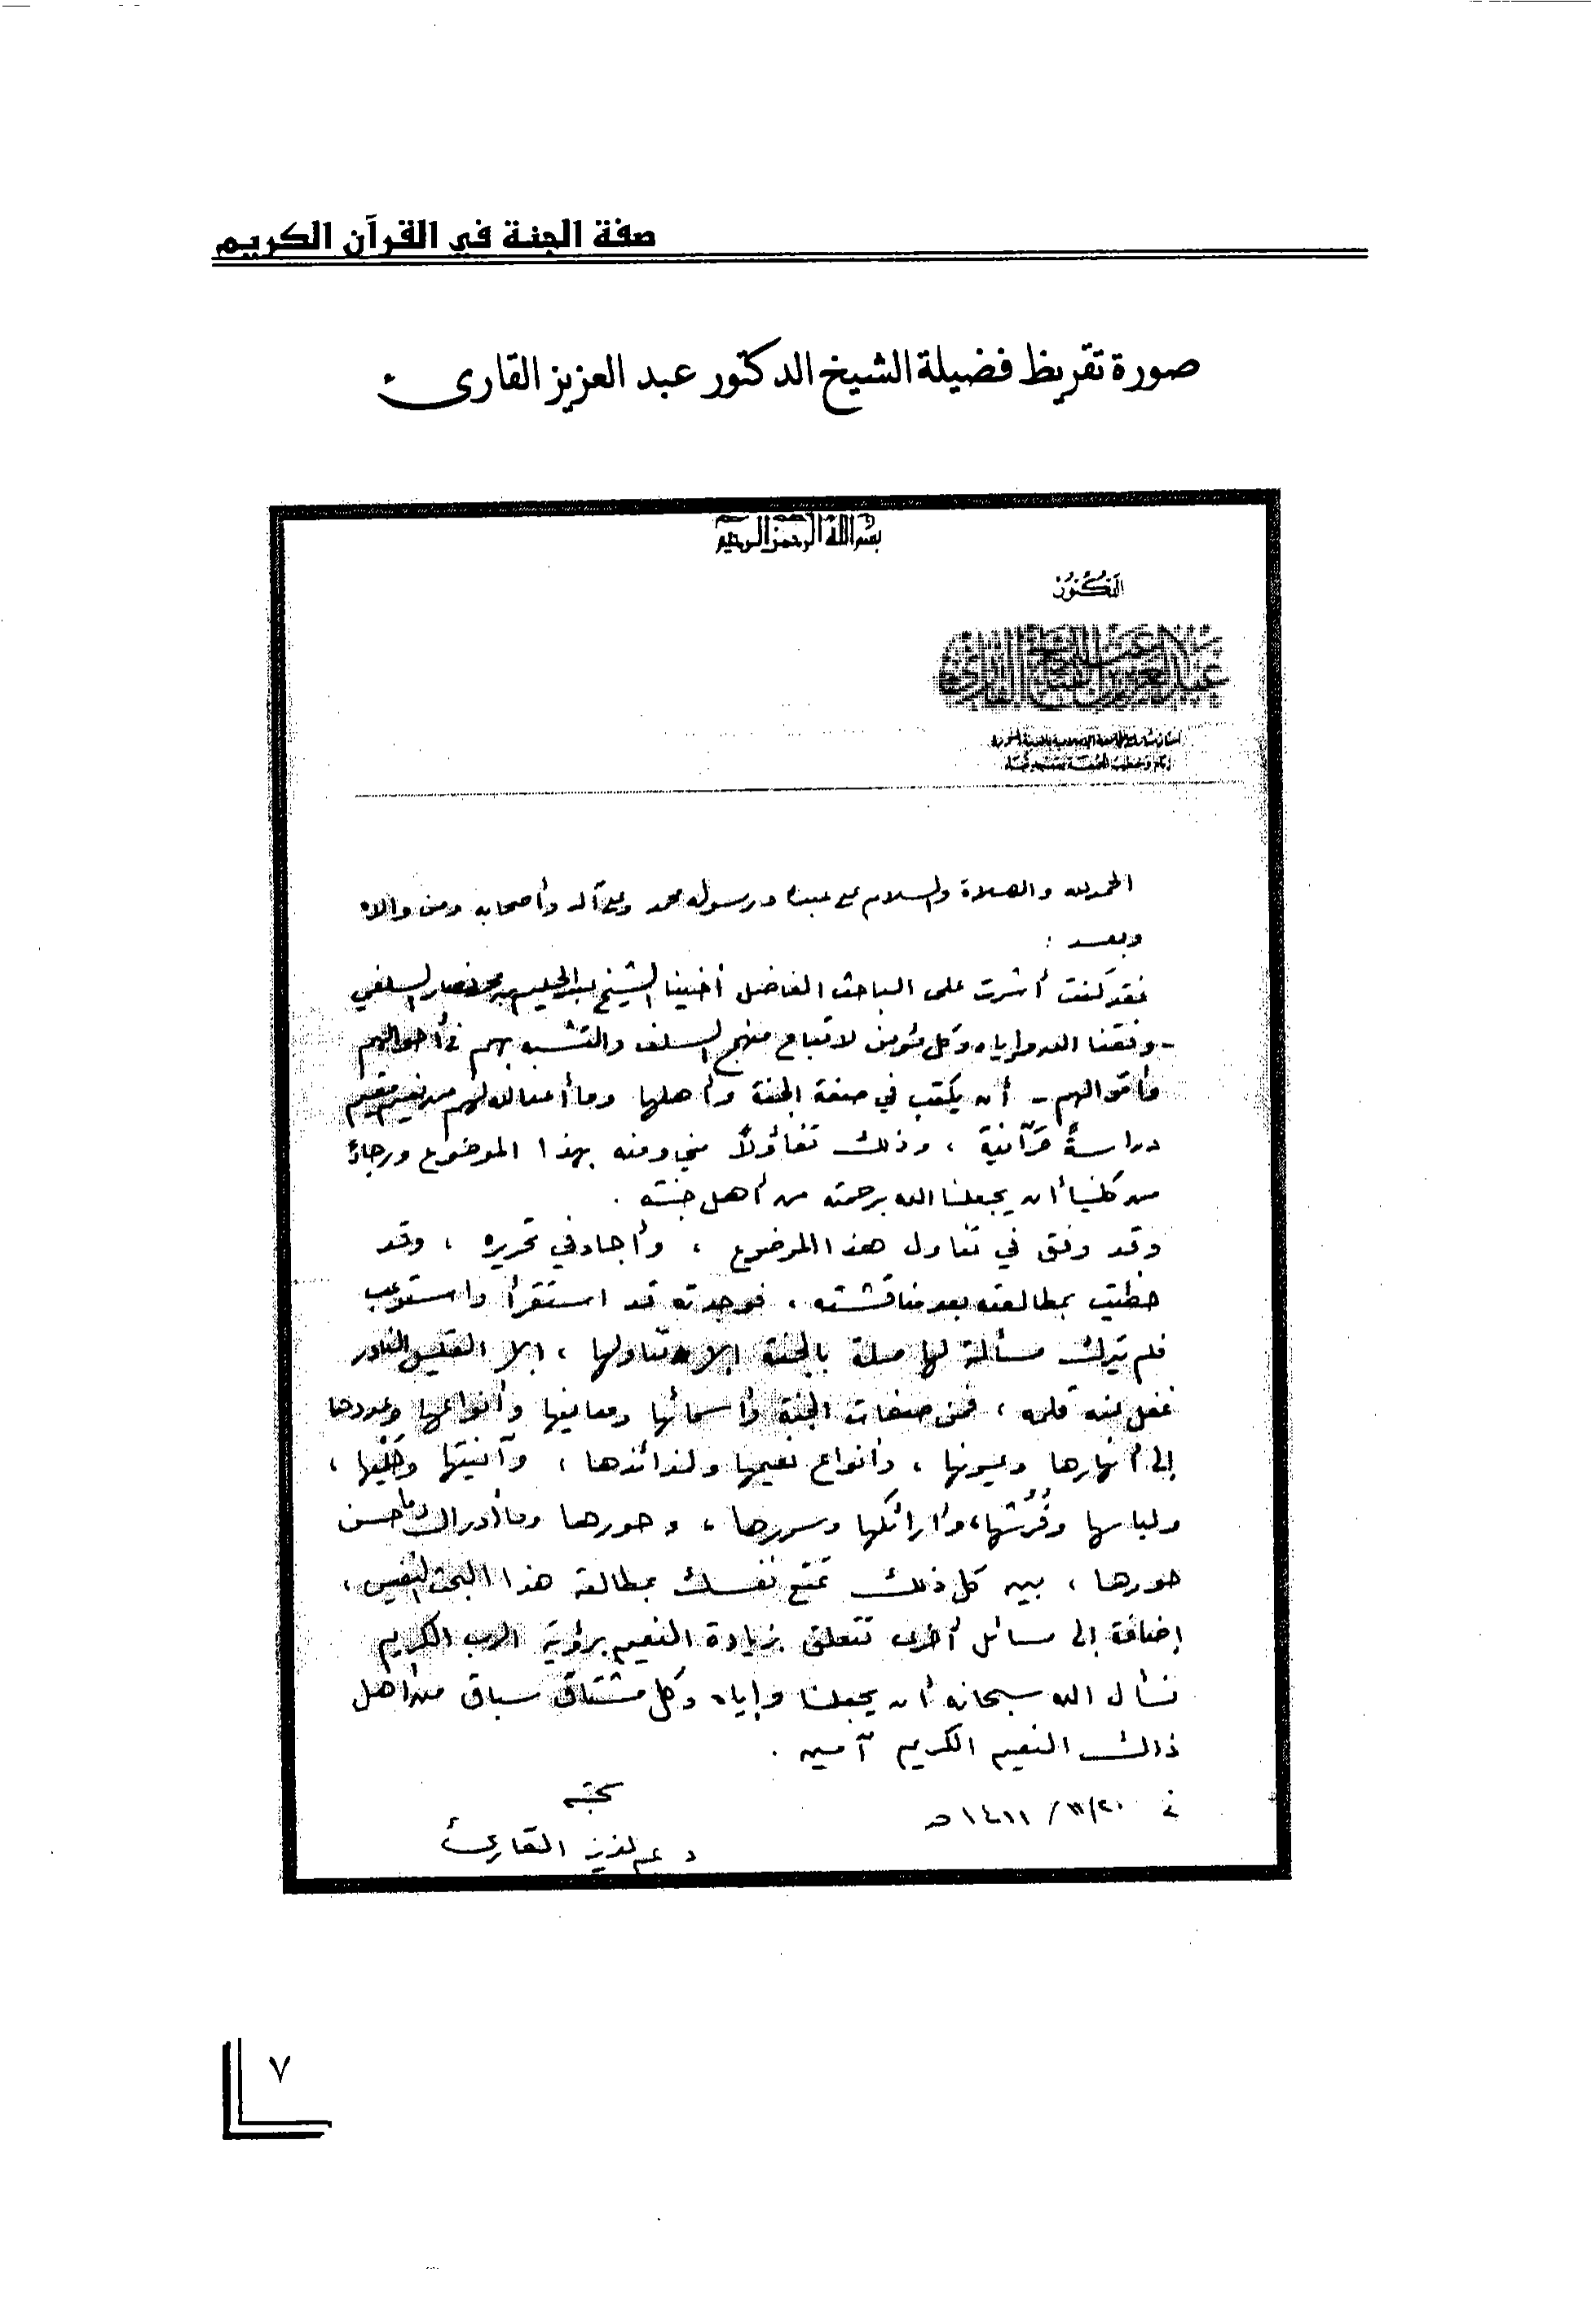 صفة الجنة في القرآن الكريم
صورة تقريظ فضيلة الشيخ الدكتور عبد العزيز القارئ
بسم الله الرحمن الرحيم
الدكتور
الحمد لله والصلاة والسلام على عبده ورسوله محمد وعلى آله وأصحابه ومن والاه
وبعد :
فقد كنت أشرت على الباحث الفاضل أخينا الشيخ عبدالحليم بن محمد نصار السلفي
- وفقنا الله وإياه وكل مؤمن لاتباع منهج السلف والتشبه بهم في أحوالهم
وأقوالهم - أن يكتب في صفة الجنة وأهلها وما أعد الله لهم من نعيم مقيم
دراسةً قرآنية ، وذلك تفاؤلاً مني ومنه بهذا الموضوع ورجاءً
من كلينا أن يجعلنا الله برحمته من أهل جنته .
وقد وفق في تناول هذا الموضوع ، وأجاد في تحريره ، وقد
حظيت بمطالعته بعد مناقشته ، فوجدته قد استقرأ واستوعب
فلم يترك مسألة لها صلة بالجنة إلا تناولها ، إلا القليل النادر
غفل عنه قلمه ، فمن صفات الجنة وأسمائها ومعانيها وأنواعها وعددها
إلى أنهارها وعيونها ، وأنواع نعيمها ولذائذها ، وآنيتها وحُليّها ،
ولباسها وفُرُشها، وأرائكها وسررها ، وحورها وما أدراك ما حسن
حورها ، بين كل ذلك تمتع نفسك بمطالعة هذا البحث النفيس ،
إضافة إلى مسائل أخرى تتعلق بزيادة النعيم برؤية الرب الكريم
نسأل الله سبحانه أن يجعلنا وإياه وكل مشتاق سباق من أهل
ذلك النعيم الكريم آمين .
في ٢٠/١١/١٤١١هـ
كتبه
د عبدالعزيز القارئ
٧